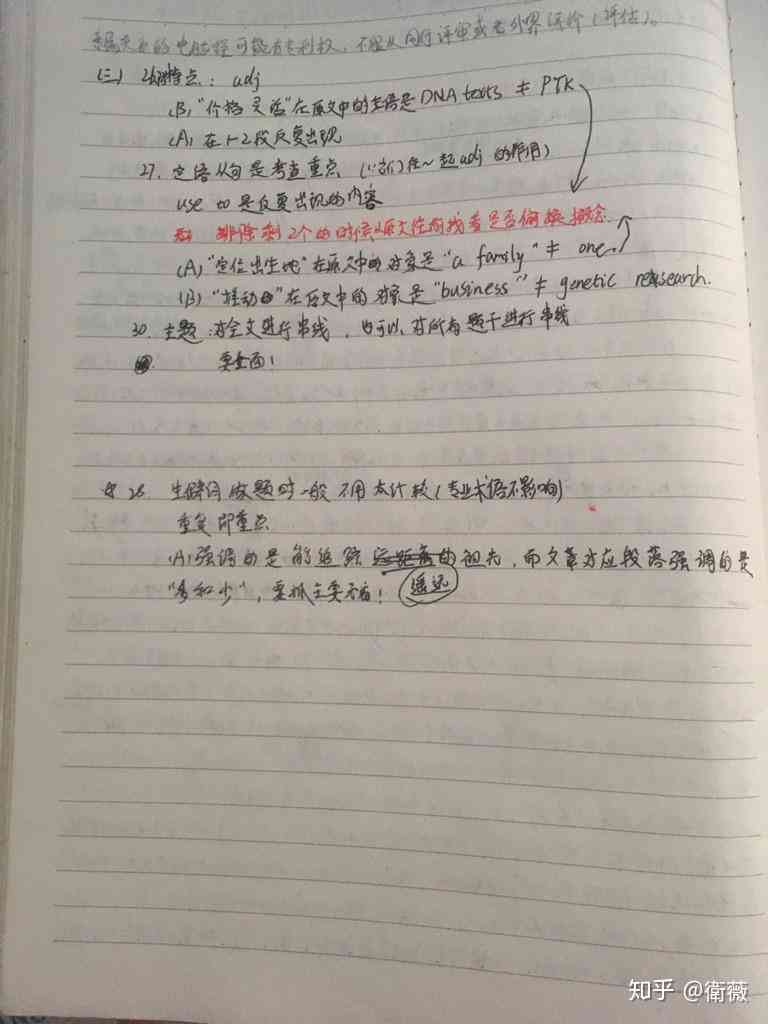 的电脑程可能有专利权，不服从同行评审或者外界评价（评估）。
（三） 26.特点：adj
(B) "价格灵活"在原文中的主语是DNA tests ≠ PTK
(A) 在1-2段反复出现
27. 定语从句是考查重点 (从句往~起adj的作用)
use to 是反复出现的内容
排除剩2个的时候从原文性有找看是否偷换概念
(A) "定位出生地"在原文中的对象是"a family" ≠ one.
(B) "推动"在原文中的对象是"business" ≠ genetic research.
30. 主题：对全文进行串线，也可以对所有题干进行串线
要全面！
☆ 28. 生僻词做题时一般不用太计较(专业术语不影响)
重复即重点
(A) 强调的是能追踪远距离的祖先，而文章对应段落强调的是
"多和少"，要抓主要矛盾！ 遥远
知乎 @衛薇